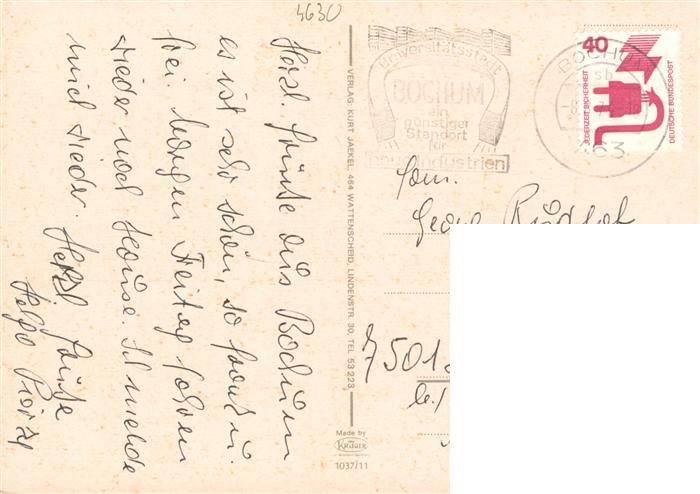 4630
Herzl. Grüße aus Bochum
es ist sehr schön, so
frei. Morgen Freitag fahren
wieder nach Hause. Ich melde
mich wieder. Herzl Grüße
VERLAG: KURT JAEKEL, 464 WATTENSCHEID, LINDENSTR. 30, TEL 53 223
Made by
KRÜGER
1037/11
Universitätsstadt
BOCHUM
ein
günstiger
Standort
für
neue Industrien
BOCHUM
sb
463
40
JEDERZEIT SICHERHEIT
DEUTSCHE BUNDESPOST
Fam.
Georg
7501